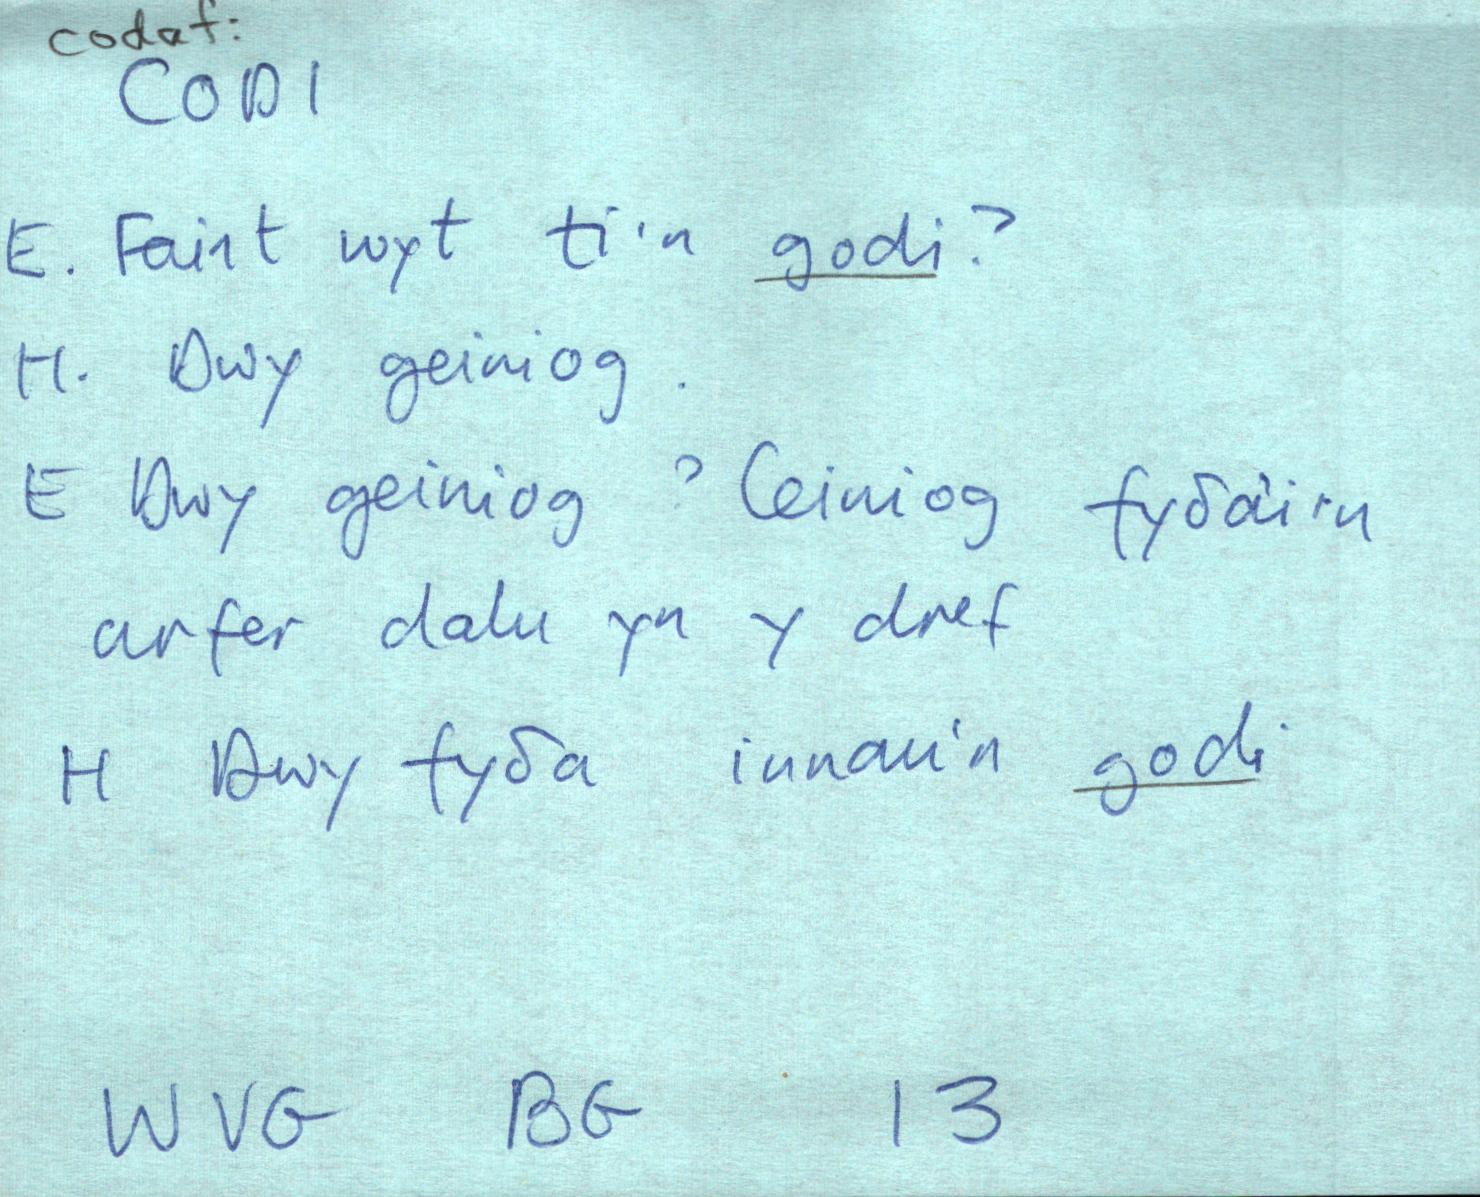 codaf:
CODI
E. Faint wyt ti'n godi?
H. Dwy geiniog.
E Dwy geiniog? Ceiniog fyδai'n
arfer dalu yn y dref
H Dwy fyδa innau'n godi
WVG BG 13